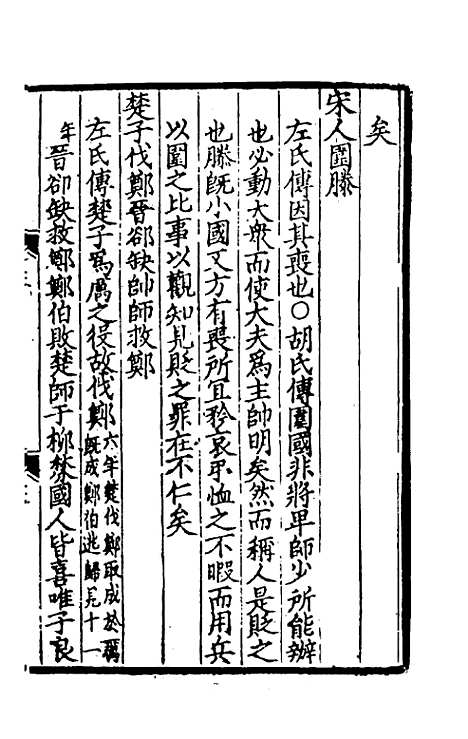 矣
宋人圍滕
左氏傳因其喪也○胡氏傳圍國非將卑師少所能辦
也必動大衆而使大夫爲主帥明矣然而稱人是貶之
也滕旣小國又方有喪所宜矜哀弔恤之不暇而用兵
以圍之比事以觀知見貶之罪在不仁矣
楚子伐鄭晉郤缺帥師救鄭
左氏傳楚子爲厲之役故伐鄭六年楚伐鄭取成於厲旣成鄭伯逃歸見十一
年晉郤缺救鄭鄭伯敗楚師于柳棼國人皆喜唯子良